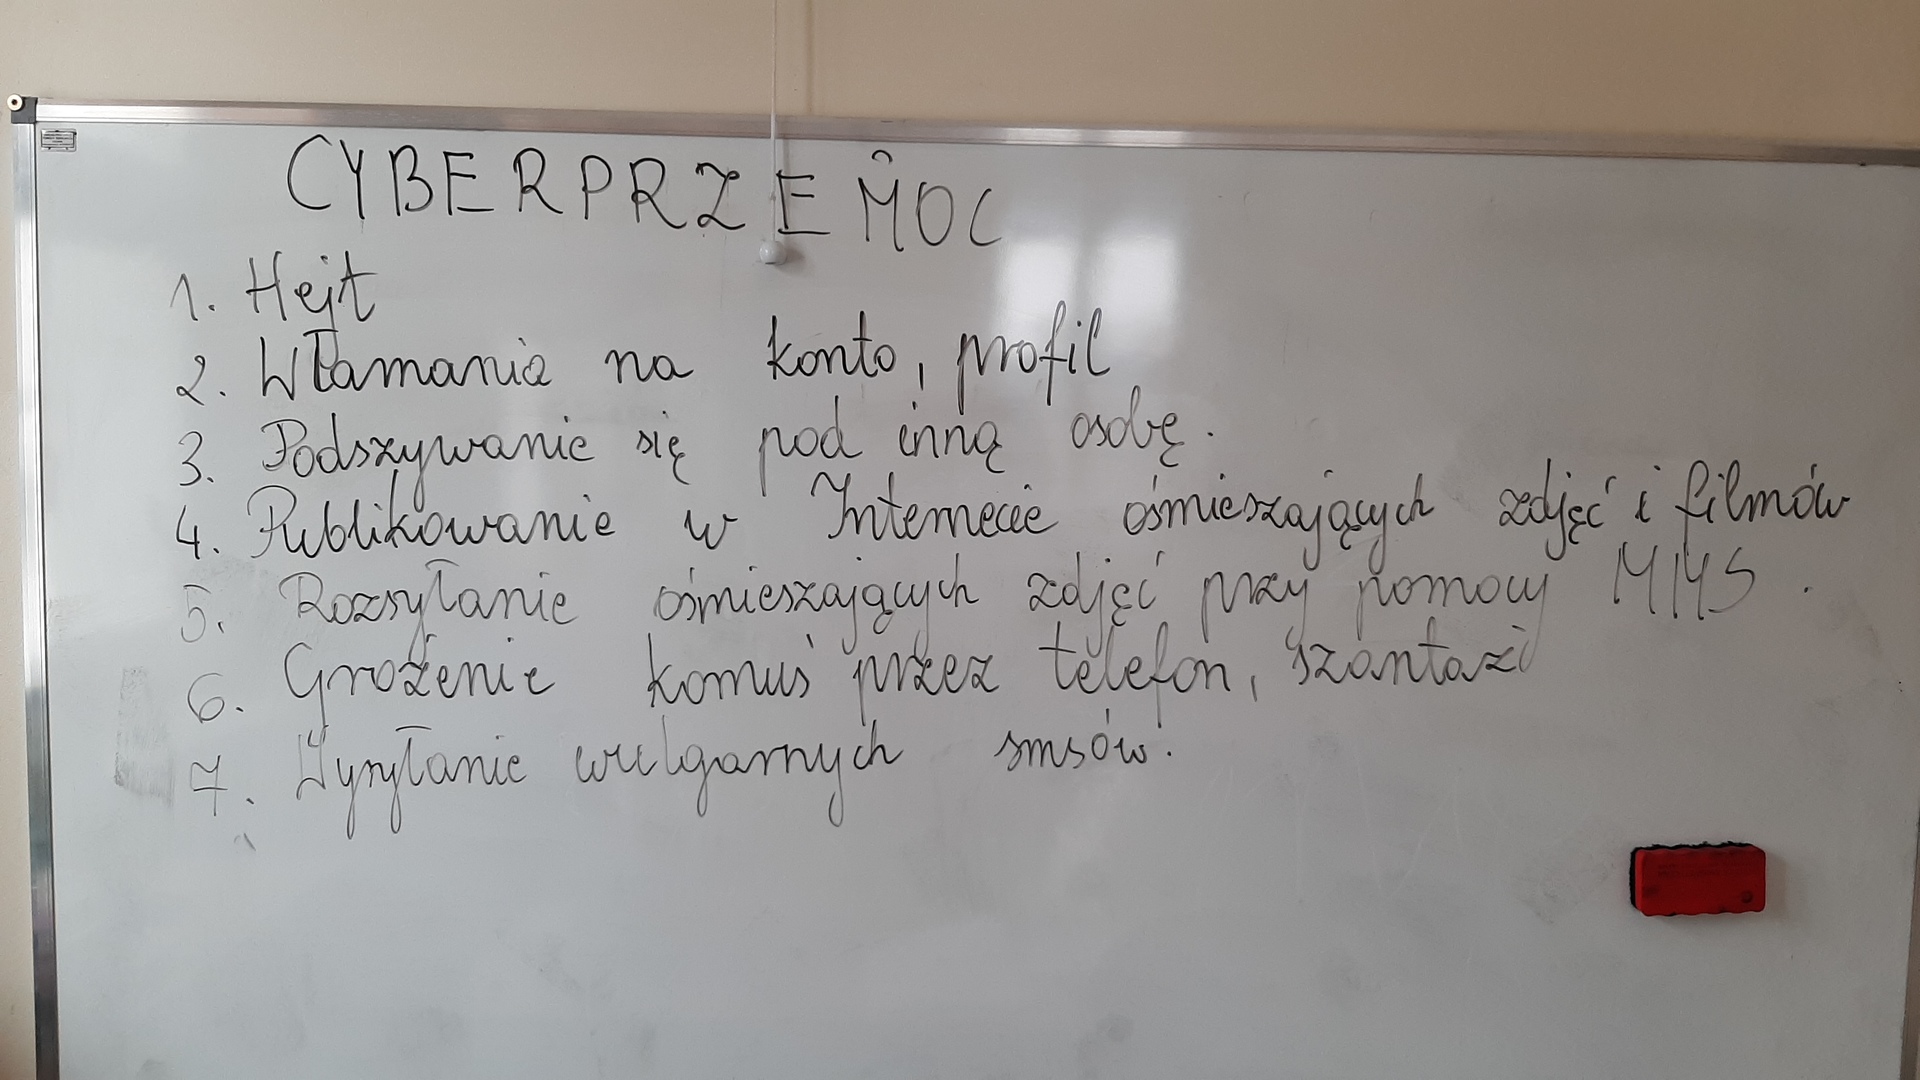 CYBERPRZEMOC
1. Hejt
2. Włamania na konto, profil
3. Podszywanie się pod inną osobę.
4. Publikowanie w Internecie ośmieszających zdjęć i filmów
5. Rozsyłanie ośmieszających zdjęć przy pomocy MMS.
6. Grożenie komuś przez telefon, szantaż
7. Wysyłanie wulgarnych smsów.